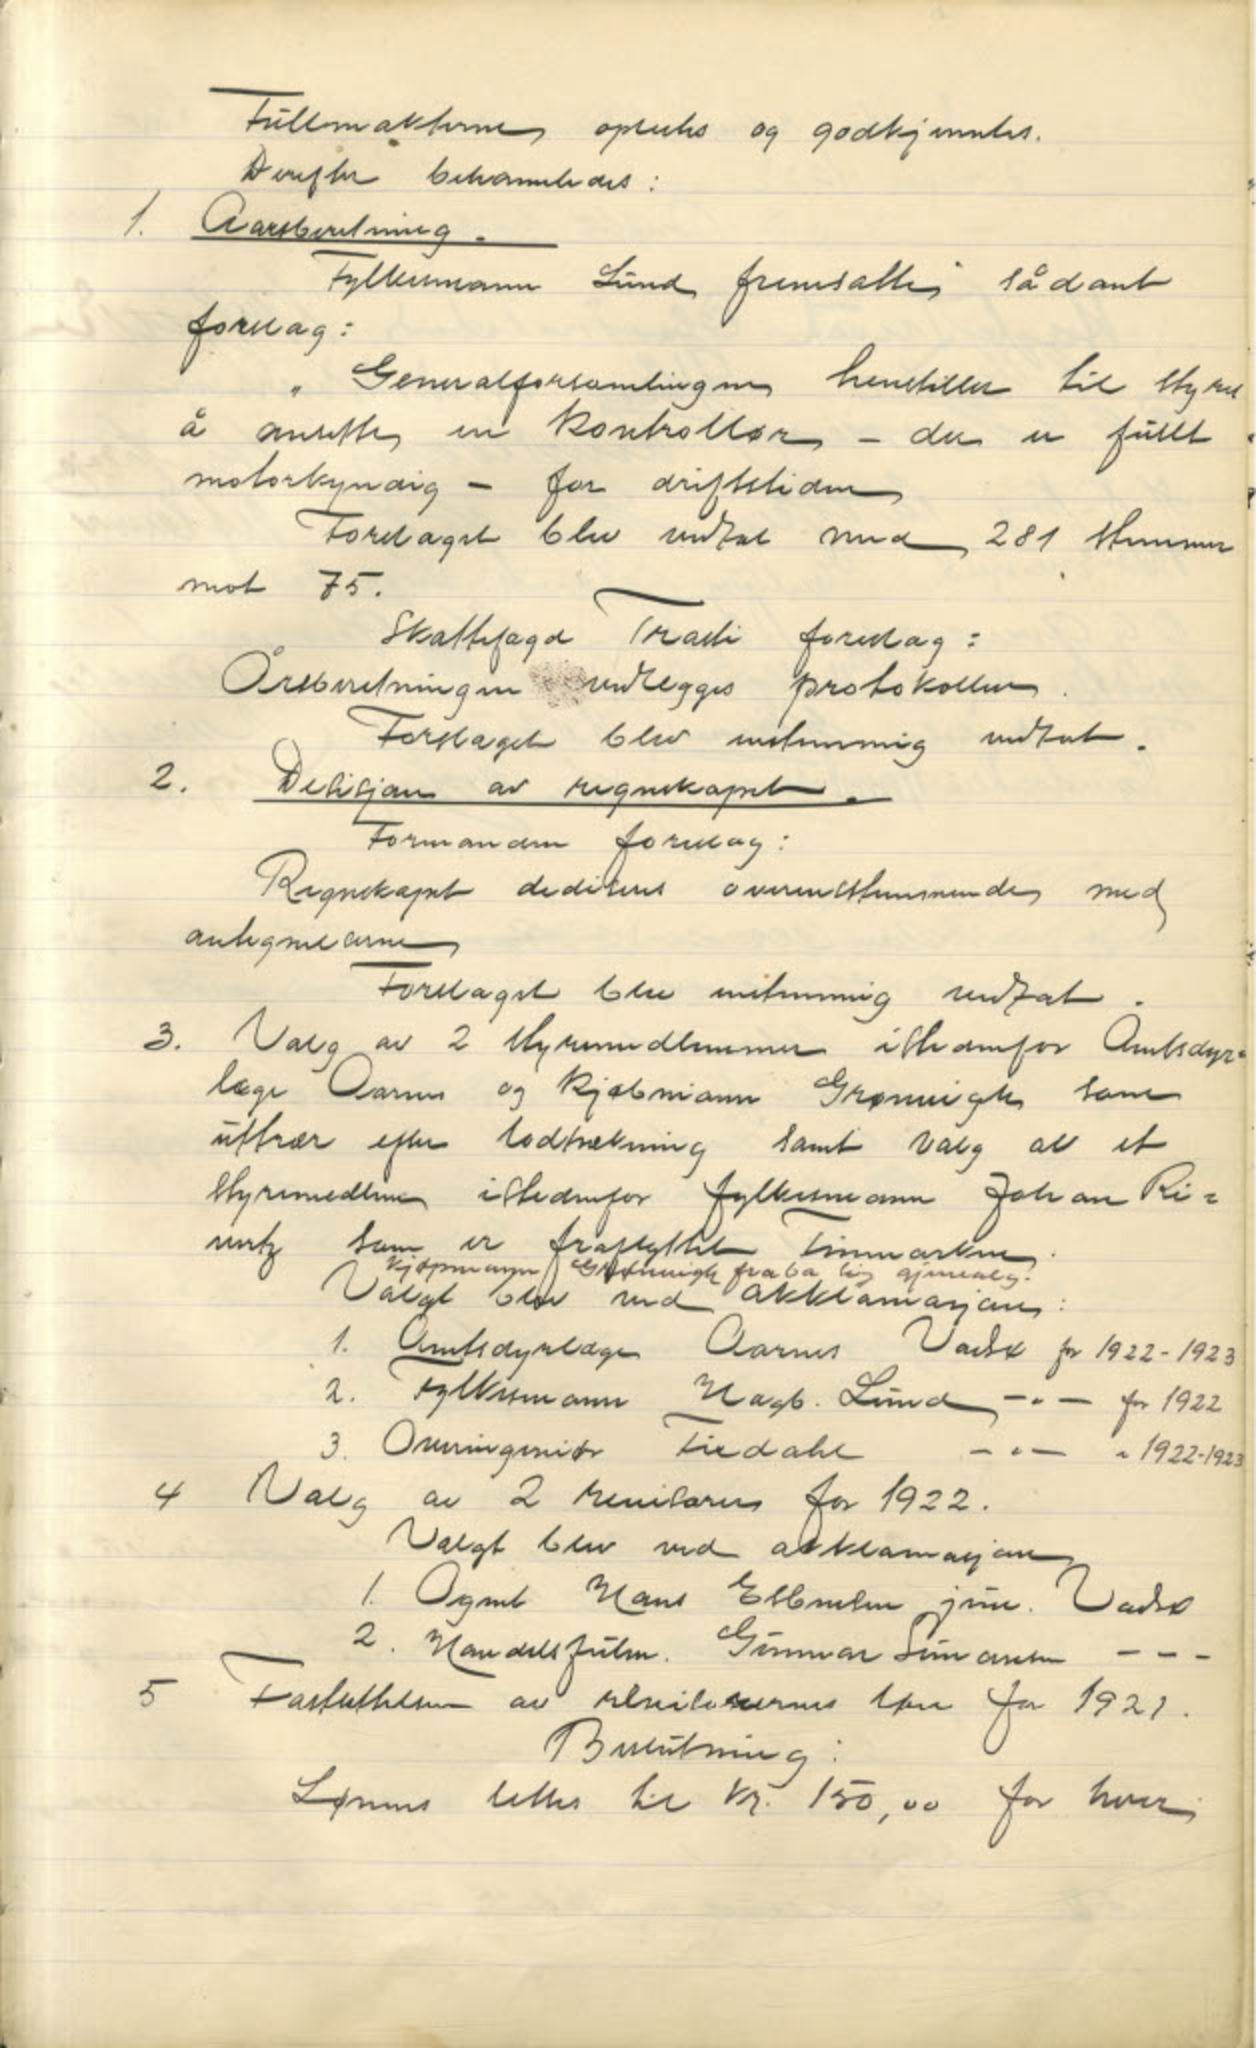 Fullmakterne oplestes og godkjentes.
Derefter behandledes:
1. Aarsberetning.
Fylkesmann Lund fremsatte sådant
forslag:
„ Generalforsamlingen henstiller til styret
å ansette en kontrollør – der er fullt
motorkyndig – for driftstiden
Forslaget blev vedtat med 281 stemmer
mot 75.
Skattefogd Trasti foreslag:
Årsberetningen vedlegges protokollen.
Forslaget blev enstemmig vedtat.
2. Desisjon av regnskapet.
Formanden foreslag:
Regnskapet desiseres overensstemmende med
antegnelserne
Forslaget blev enstemmig vedtat.
3. Valg av 2 styremedlemmer istedenfor Amtsdyr-
læge Aarnes og kjøbmann Grønvigh som
uttrær efter lodtrekning samt valg av et
styremedlem istedenfor fylkesmann Johan Ri-
vertz som er fraflyttet Finnmarken.
Kjøpmann Grønnvigh fraba sig gjenvalg.
Valgt blev ved akklamasjon:
1. Amtsdyrlæge Aarnes Vadsø for 1922-1923
2. Fylkesmann Hagb. Lund –"– for 1922
3. Overingeniør Fiedahl –"– " 1922-1923
4 Valg av 2 revisorer for 1922.
Valgt blev ved akklamasjon
1. Agent Hans Esbensen jun. Vadsø
2. Handelsfulm. Gunnar Simonsen – – –
5 Fastsettelsen av revisorernes løn for 1921.
Beslutning:
Lønnen settes til kr. 150,00 for hver